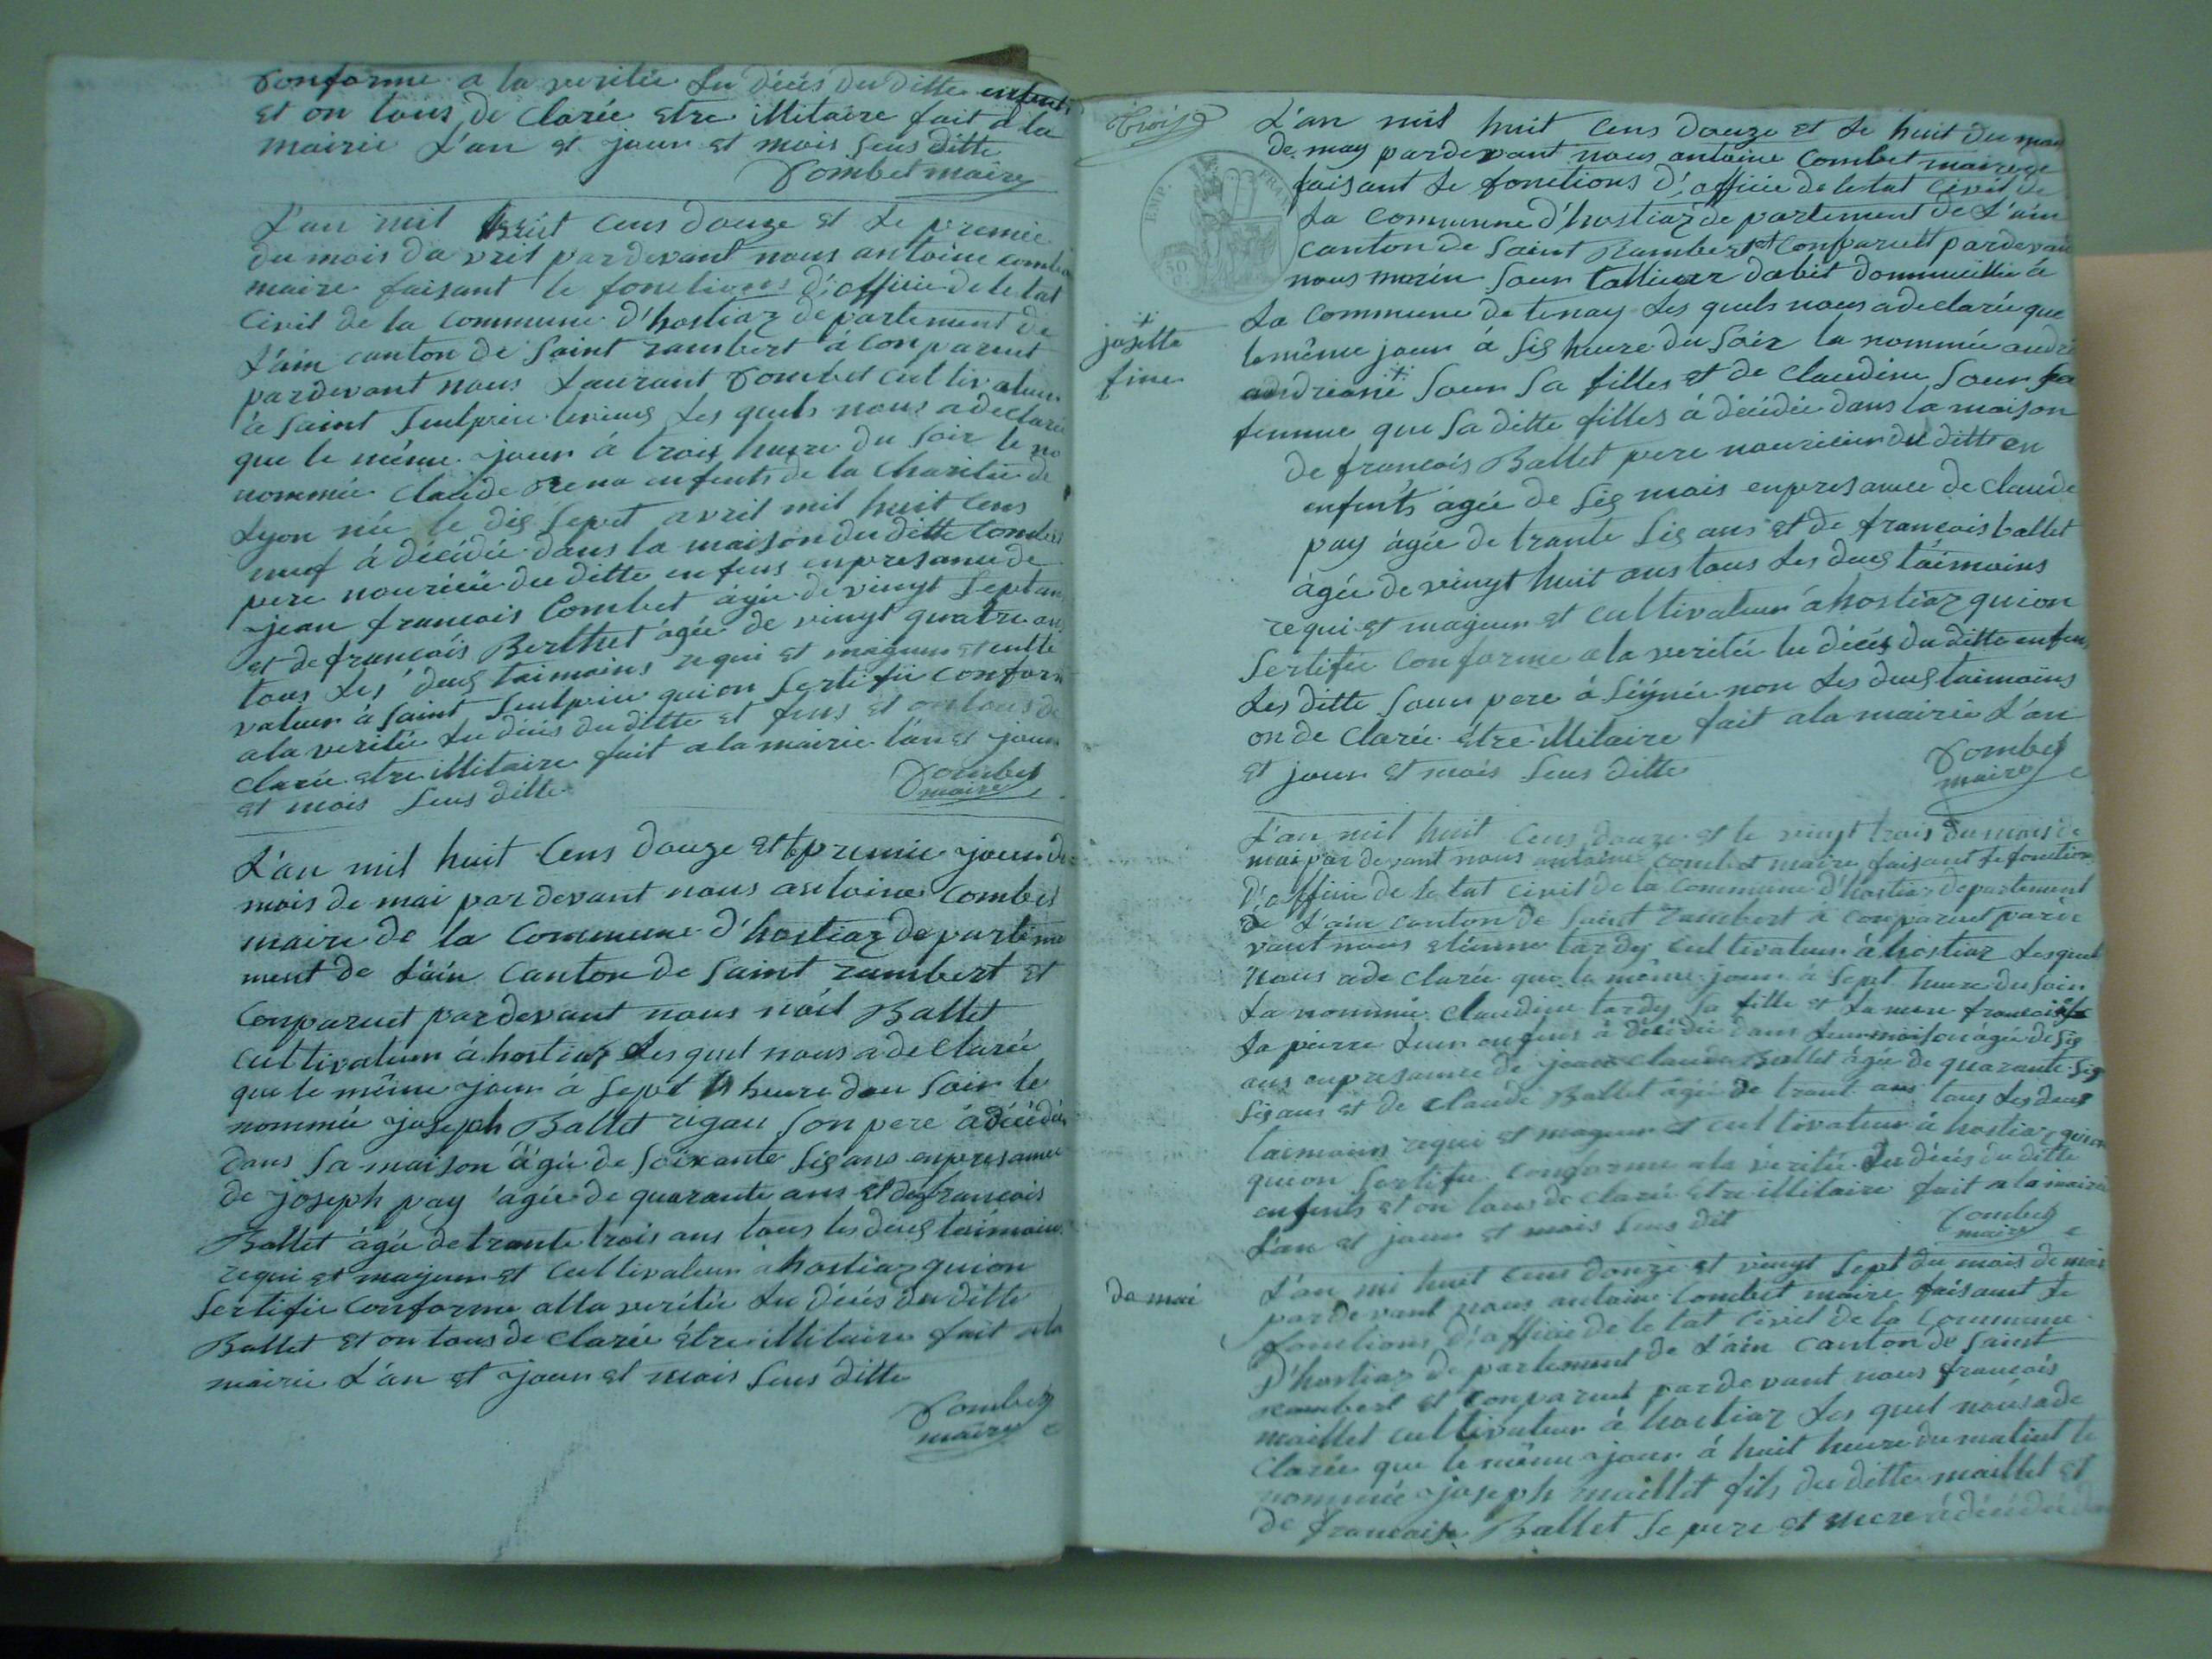 Conforme a la veritée du décés du ditte enfents
et on tous de clarée etre illitaire fait a la
mairie L'an et jour et mois sus ditte
Combet maire
L'an mil huit cens douze et le premie
du mois da vril pardevant nous antoine combe
maire faisant le fonctions d'officie de letat
Civil de la commune d'hostiaz departement de
L'ain canton de Saint rambert a conparut
pardevant nous Laurant Combet cultivateur
à Saint Seulpice les quels nous a declarée
que le même jour à trois heure du soir le no
nommée Claude Rena enfents de la Charitée de
Lyon née le dis sept avril mil huit cens
neuf à décidée dans la maison du ditte Combet
pere nouricie du ditte enfens enpresance de
jean francois Combet agée de vingt sept ans
et de francois Berthet agée de vingt quatre ans
tous les deus taimoins requi et majeur et culti
vateur à saint Seulpice quion sertifie conform
ala veritée du décés du ditte et fens et on tous de
clarée etre illitaire fait a la mairie l'an et jour
et mois sus ditte
Combet
maire
L'an mil huit cens douze et le premie jour du
mois de mai pardevant nous antoine Combet
maire de la Commune d'hostiaz departeme
ment de L'ain Canton de Saint rambert et
Conparuet pardevant nous noël Ballet
cultivateur à hostiaz Les quel nous a declarée
que le même jour à sept h heure dou soir le
nommée joseph Ballet rigau son pere à décédée
dans sa maison àgée de soixante sis ans enpresance
de joseph pay àgée de quarante ans et de francois
Ballet àgée de trante trois ans tous les deus taimoins
requi et majeur et cultivateur à hostiaz quion
sertifie Conforme alla veritée du décés du ditte
Ballet et on tous de clarée être illitaire fait ala
mairie L'an et jour et mois sus ditte
Combet
maire
trois
EMP. FRAN
L'an mil huit cens douze et le huit du mois
de may pardevant nous antoine Combet maire
faisant le fonctions d'officie de letat civil de
La Commune d'hostiaz de partement de L'ain
canton de Saint Rambert et Conparuet pardevan
nous morin Soun dabit dommicillie à
La Commune de tenay Les quels nous a declarée que
josette
fine
lemême jour à sis heure du soir la nommée
Soun sa filles et de Claudine Soun sa
femme que sa ditte filles à décidée dans la maison
de francois Ballet pere nouricier du ditte en
enfents àgée de sis mois enpresance de Claude
pay àgée de trante sis ans et de francois ballet
àgée de vingt huit ans tous les deus taimoins
requi et majeur et cultivateur à hostiaz quion
sertifie Conforme ala veritée du décés du ditte enfens
Les ditte Soun pere à signée non les deus taimoins
on de clarée être illitaire fait a la mairie L'an
et jour et mois sus ditte
Combet
maire
L'an mil huit cens douze et le vingt trois du mois de
mai pardevant nous antoine combet maire faisant le fonction
D'officie de le tat civil de la Commune d'hostiaz departement
de L'ain canton de saint rambert à conparuet parde
vant nous etienne tardy cultivateur à hostiaz Les quel
nous a de clarée que le même jour à sept heure du soir
La nommée claudine tardy sa fille et La mere francoise
la pierre leur enfens à décédée dans leur maison àgée de sis
ans enpresance de jean claude Ballet àgée de quarante sis
sis ans et de claude Ballet àgée de trant ans tous les deus
taimoins requi et majeur et cultivateur à hostiaz quion
quion sertifie conforme ala veritée du décés du ditte
enfents et on tous de clarée etre illitaire fait a la mairie
L'an et jour et mois sus dit
Combet
maire
de mai
L'an mi huit cens douze et vingt sept du mois de mai
pardevant nous antoine Combet maire faisant le
fonctions d'officie de le tat civil de la Commune
D'hostiaz de partement de L'ain canton de saint
rambert et Conparuet pardevant nous francois
maillet cultivateur à hostiaz Les quel nous a de
clarée que le même jour à huit heure du matint le
nommée joseph maillet fils du ditte maillet et
de francoise Ballet se pere et mere à décédée